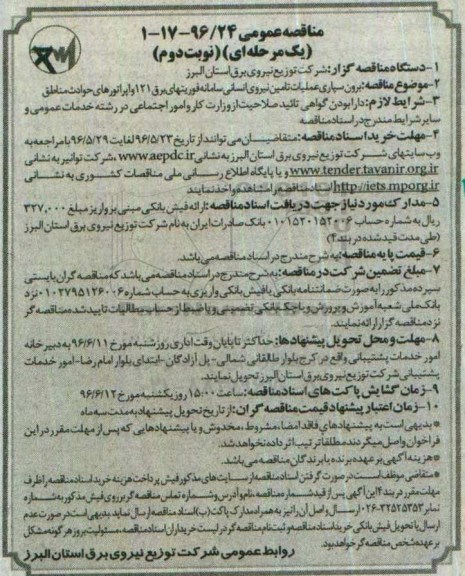 مناقصه عمومی ۹۶/۲۴-۱۷-۱
(یک مرحله ای) (نوبت دوم)
۱- دستگاه مناقصه گزار: شرکت توزیع نیروی برق استان البرز
۲- موضوع مناقصه: برون سپاری عملیات تامین نیروی انسانی سامانه فوریتهای برق ۱۲۱ و اپراتورهای حوادث مناطق
۳- شرایط لازم: دارا بودن گواهی تائید صلاحیت از وزارت کار و امور اجتماعی در رشته خدمات عمومی و
سایر شرایط مندرج در اسناد مناقصه
۴- مهلت خرید اسناد مناقصه: متقاضیان می توانند از تاریخ ۹۶/۵/۲۳ لغایت ۹۶/۵/۲۹ با مراجعه به
وب سایتهای شرکت توزیع نیروی برق استان البرز به نشانی www.aepdc.ir، شرکت توانیر به نشانی
www.tender.tavanir.org.ir و یا پایگاه اطلاع رسانی ملی مناقصات کشوری به نشانی
http://iets.mporg.ir اسناد مناقصه را مشاهده و اخذ نمایند
۵- مدارک مورد نیاز جهت دریافت اسناد مناقصه: ارائه فیش بانکی مبنی بر واریز مبلغ ۳۲۷,۰۰۰
ریال به شماره حساب ۰۱۰۱۵۲۰۱۵۲۰۰۶ بانک صادرات ایران به نام شرکت توزیع نیروی برق استان البرز
(طی مدت قید شده در بند ۴)
۶- قیمت پایه مناقصه: به شرح مندرج در اسناد مناقصه می باشد.
۷- مبلغ تضمین شرکت در مناقصه: به شرح مندرج در اسناد مناقصه می باشد که مناقصه گران بایستی
سپرده مذکور را به صورت ضمانتنامه بانکی یا فیش بانکی واریزی به حساب شماره ۰۱۰۲۷۹۵۱۲۶۰۰۶ نزد
بانک ملی شعبه آموزش و پرورش و یا چک بانکی تضمینی و یا ضبط از حساب مطالبات تایید شده مناقصه گر
نزد مناقصه گزار ارائه نمایند.
۸- مهلت و محل تحویل پیشنهادها: حداکثر تا پایان وقت اداری روز شنبه مورخ ۹۶/۶/۱۱ به دبیرخانه
امور خدمات پشتیبانی واقع در کرج بلوار طالقانی شمالی- پل آزادگان- ابتدای بلوار امام رضا- امور خدمات
پشتیبانی شرکت توزیع نیروی برق استان البرز تحویل نمایند.
۹- زمان گشایش پاکت های اسناد مناقصه: ساعت ۱۵:۰۰ روز یکشنبه مورخ ۹۶/۶/۱۲
۱۰- زمان اعتبار پیشنهاد قیمت مناقصه گران: از تاریخ تحویل پیشنهاد به مدت سه ماه
* بدیهی است به پیشنهادهای فاقد امضا، مشروط، مخدوش و یا پیشنهادهایی که پس از مهلت مقرر در این
فراخوان واصل میگردند مطلقا ترتیب اثر داده نخواهد شد.
* هزینه آگهی بر عهده برنده یا برندگان مناقصه می باشد.
* متقاضی موظف است در صورت گرفتن اسناد مناقصه از سایت های مذکور فیش پرداخت هزینه خرید اسناد مناقصه را ظرف
مهلت مقرر در بند ۴ این آگهی پس از قید شماره مناقصه، نام و آدرس و شماره تماس مناقصه گر بر روی فیش مذکور به شماره
نمابر ۳۲۵۲۵۳۵۳-۰۲۶ ارسال و اصل آن را نیز به همراه مدارک پاکت (ب) اسناد مناقصه ارسال نماید. بدیهی است در صورت عدم
ارسال یا تحویل فیش بانکی خرید اسناد مناقصه و ثبت نام مناقصه گر در لیست خریداران اسناد مناقصه، مسئولیت بروز هر گونه مشکل
بر عهده شخص مناقصه گر خواهد بود.
روابط عمومی شرکت توزیع نیروی برق استان البرز